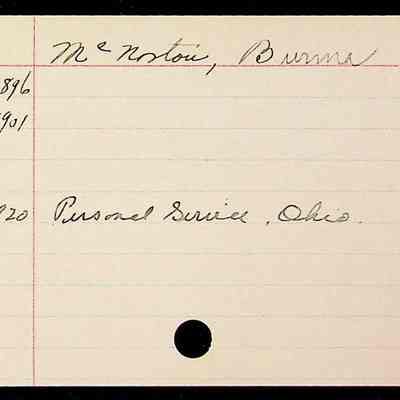 Mc Norton, Burma
896
901
920 Personal Service, Ohio.